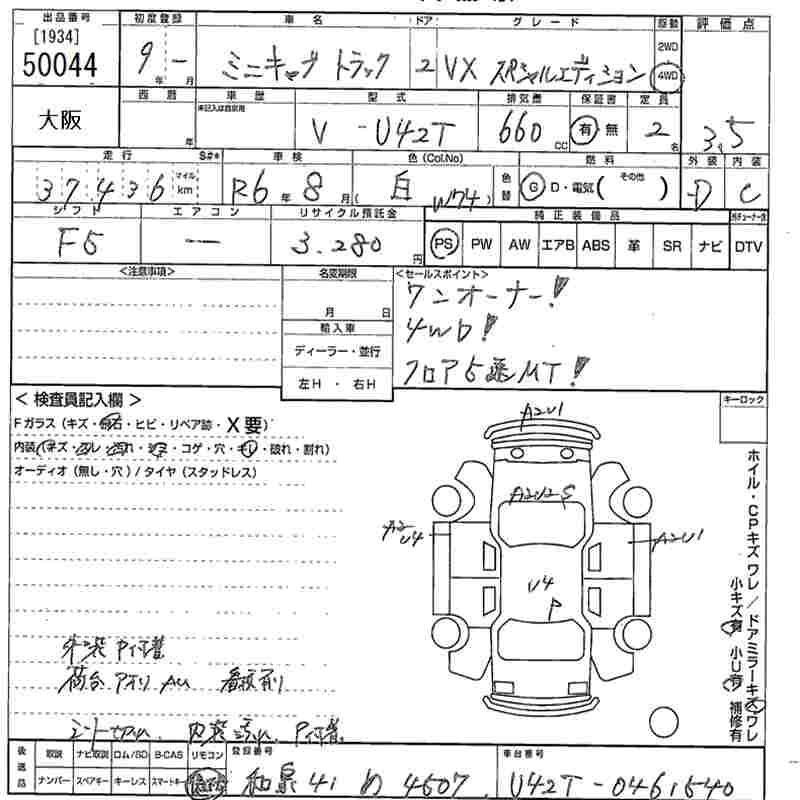 出品番号 初度登録 車名 ドア グレード 駆動 評価点
[1934]
50044 9年 -月 ミニキャブ トラック 2 VX スペシャルエディション 2WD 4WD 3.5
大阪 西暦 年 車歴 未記入は自家用 型式 V - U42T 排気量 660 CC 保証書 有 無 定員 2名
走行 S#* 車検 色(Col.No) 色替 燃料 外装 内装
37436 マイル km R6年 8月 (白 W74) G D・電気 (その他) D C
シフト エアコン リサイクル預託金 純正装備品
F5 — 3.280円 PS PW AW エアB ABS 革 SR ナビ DTV
<注意事項> 名変期限 <セールスポイント>
月 日 ワンオーナー!
輸入車 4WD!
ディーラー・並行 フロア5速MT!
左H ・ 右H
<検査員記入欄> キーロック
Fガラス(キズ・飛石・ヒビ・リペア跡・X要)
内装(キズ・スレ・汚れ・コゲ・穴・キレ・破れ・割れ)
オーディオ(無し・穴)/タイヤ(スタッドレス)
A2U1
A2U2S
A2U4
A2U1
U4
P
ホイル・CPキズワレ/ドアミラーキズワレ
小キズ有 小U有 補修有
外装 P付着
荷台 アオリ AU 看板削り
シート切れ. 内装汚れ. P付着.
後送品 取説 ナビ取説 ロム/SD B-CAS リモコン 登録番号 車台番号
ナンバー スペアキー キーレス スマートキー 和泉 41 め 4607 U42T-0461540